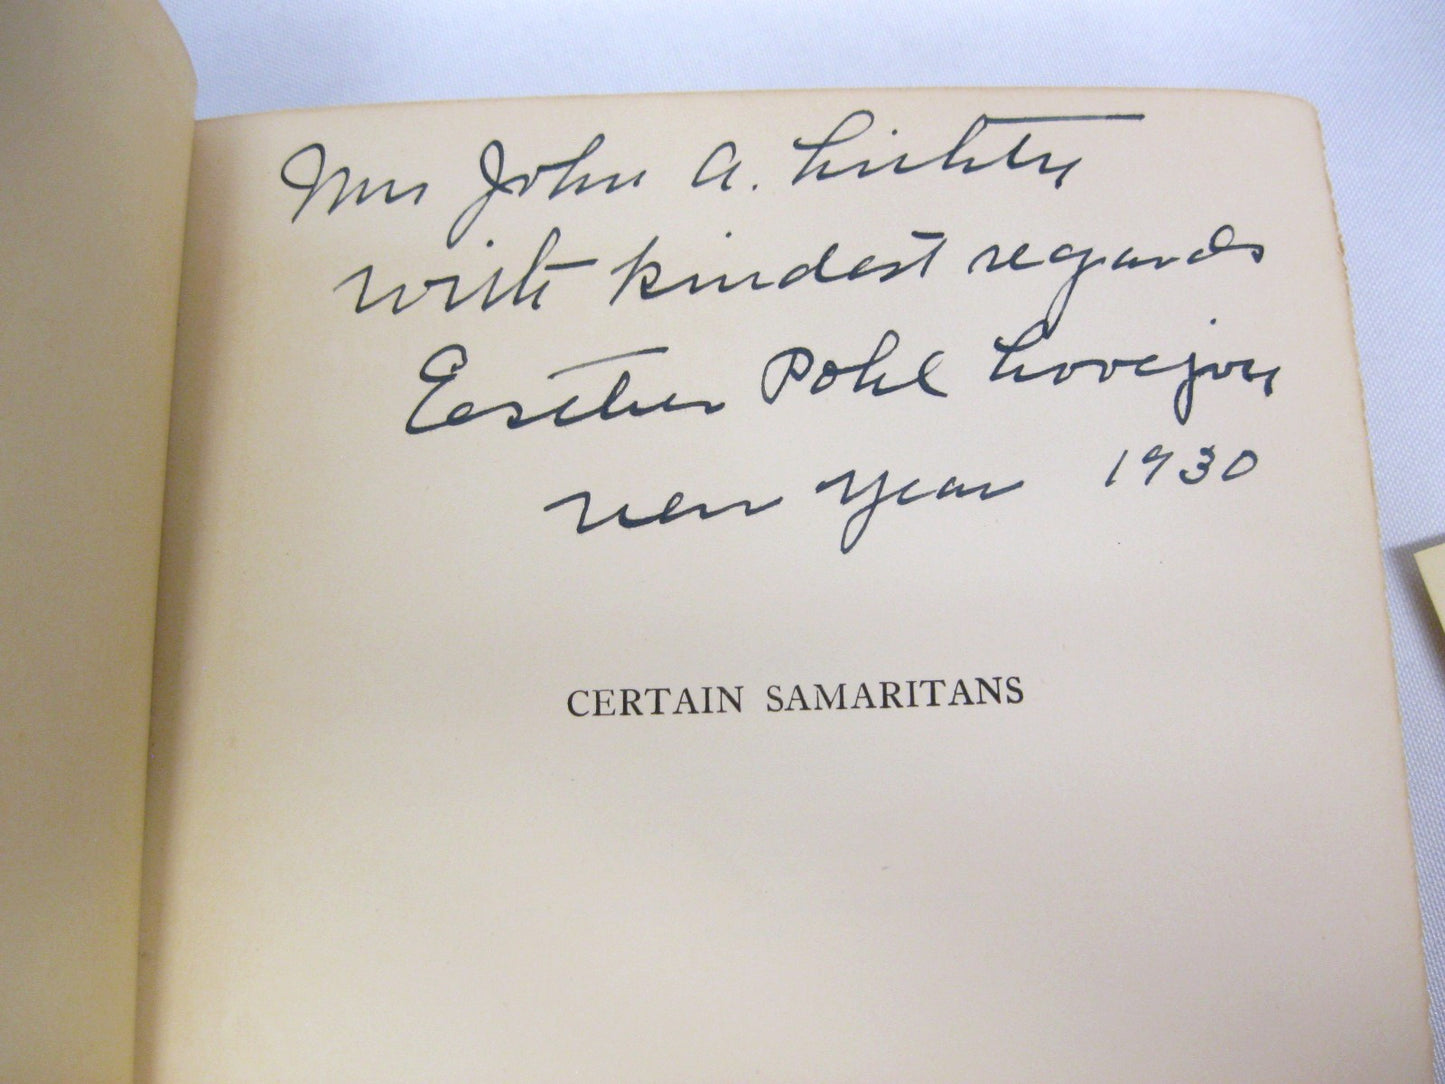 Mrs John A. Lichty
with kindest regards
Esther Pohl Lovejoy
New Year 1930
CERTAIN SAMARITANS